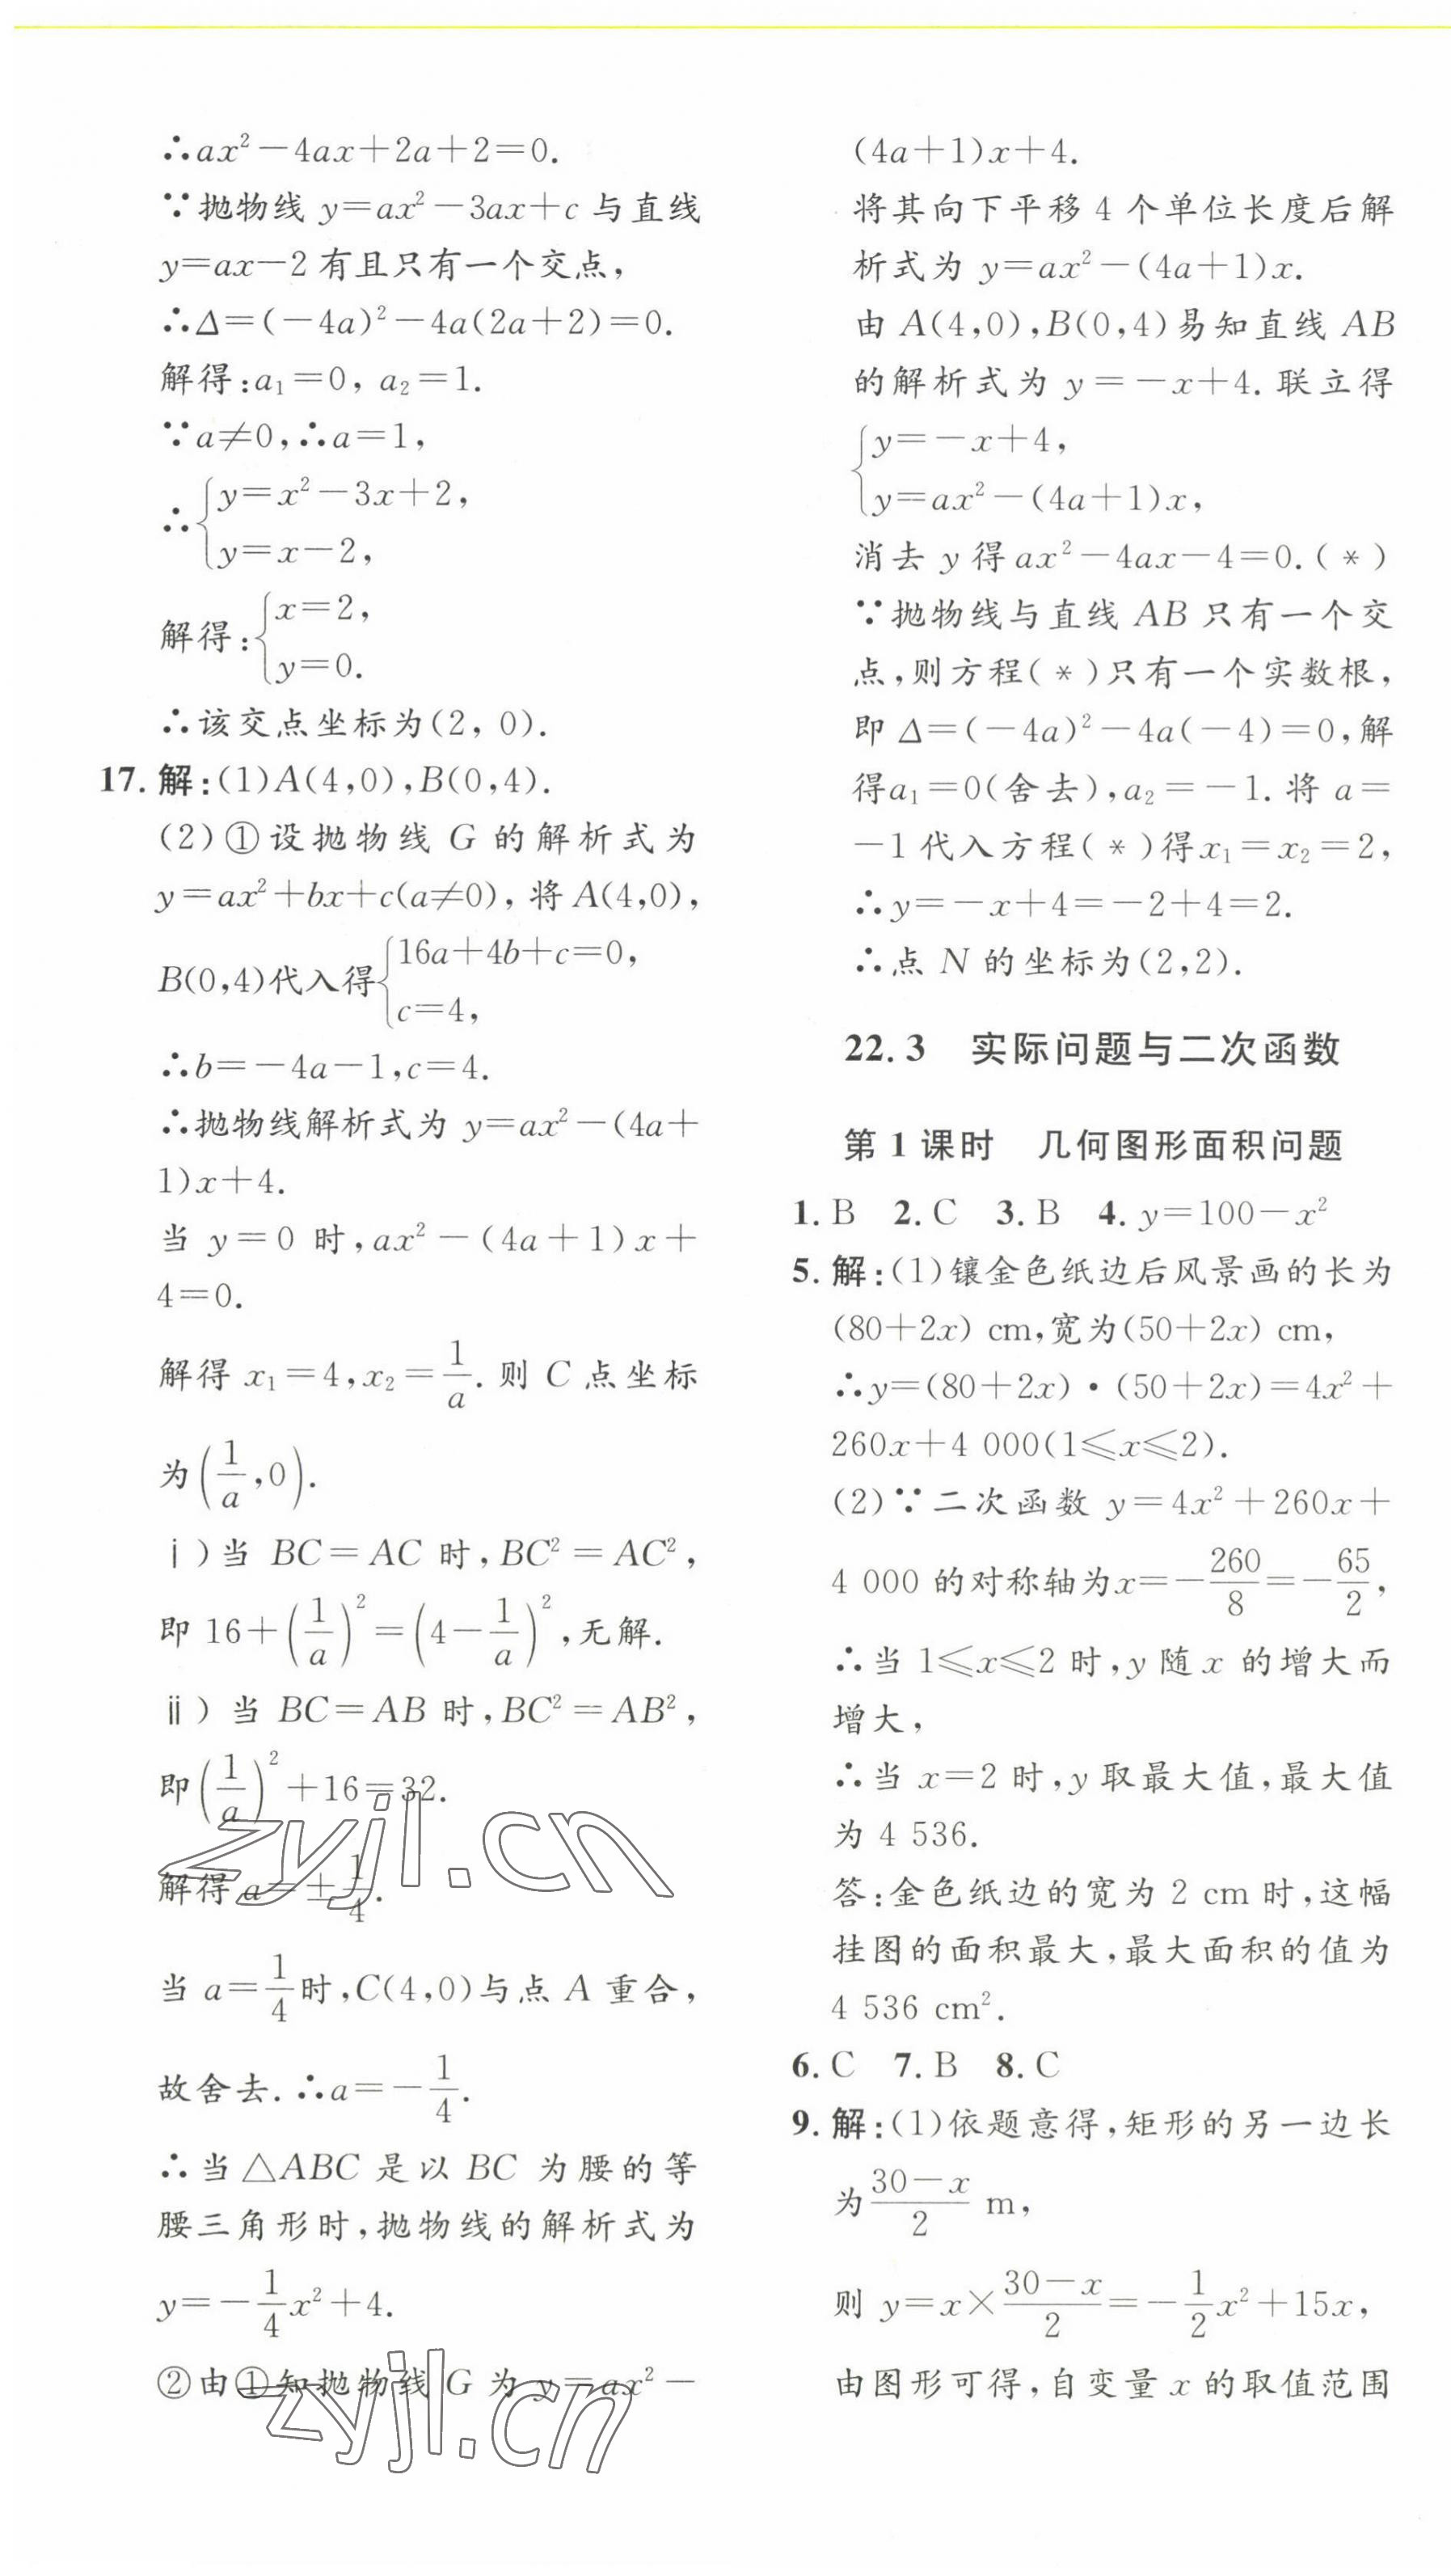 ∴ax²－4ax＋2a＋2＝0.
∵抛物线 y＝ax²－3ax＋c 与直线
y＝ax－2 有且只有一个交点，
∴Δ＝(－4a)²－4a(2a＋2)＝0.
解得：a₁＝0，a₂＝1.
∵a≠0，∴a＝1，
∴{y＝x²－3x＋2，
y＝x－2，
解得：{x＝2，
y＝0.
∴该交点坐标为(2，0).
17. 解：(1)A(4,0)，B(0,4).
(2)①设抛物线 G 的解析式为
y＝ax²＋bx＋c(a≠0)，将 A(4,0)，
B(0,4)代入得{16a＋4b＋c＝0，
c＝4，
∴b＝－4a－1，c＝4.
∴抛物线解析式为 y＝ax²－(4a＋
1)x＋4.
当 y＝0 时，ax²－(4a＋1)x＋
4＝0.
解得 x₁＝4，x₂＝1/a. 则 C 点坐标
为(1/a，0).
ⅰ)当 BC＝AC 时，BC²＝AC²，
即 16＋(1/a)²＝(4－1/a)²，无解.
ⅱ)当 BC＝AB 时，BC²＝AB²，
即(1/a)²＋16＝32.
解得 a＝±1/4.
当 a＝1/4时，C(4,0)与点 A 重合，
故舍去. ∴a＝－1/4.
∴当△ABC 是以 BC 为腰的等
腰三角形时，抛物线的解析式为
y＝－1/4x²＋4.
②由①知抛物线 G 为 y＝ax²－
(4a＋1)x＋4.
将其向下平移 4 个单位长度后解
析式为 y＝ax²－(4a＋1)x.
由 A(4,0)，B(0,4)易知直线 AB
的解析式为 y＝－x＋4. 联立得
{y＝－x＋4，
y＝ax²－(4a＋1)x，
消去 y 得 ax²－4ax－4＝0.(＊)
∵抛物线与直线 AB 只有一个交
点，则方程(＊)只有一个实数根，
即 Δ＝(－4a)²－4a(－4)＝0，解
得a₁＝0(舍去)，a₂＝－1. 将 a＝
－1 代入方程(＊)得x₁＝x₂＝2，
∴y＝－x＋4＝－2＋4＝2.
∴点 N 的坐标为(2,2).
22.3 实际问题与二次函数
第 1 课时 几何图形面积问题
1. B 2. C 3. B 4. y＝100－x²
5. 解：(1)镶金色纸边后风景画的长为
(80＋2x) cm，宽为(50＋2x) cm，
∴y＝(80＋2x)·(50＋2x)＝4x²＋
260x＋4 000(1≤x≤2).
(2)∵二次函数 y＝4x²＋260x＋
4 000 的对称轴为x＝－260/8＝－65/2，
∴当 1≤x≤2 时，y 随 x 的增大而
增大，
∴当 x＝2 时，y 取最大值，最大值
为 4 536.
答：金色纸边的宽为 2 cm 时，这幅
挂图的面积最大，最大面积的值为
4 536 cm².
6. C 7. B 8. C
9. 解：(1)依题意得，矩形的另一边长
为(30－x)/2 m，
则 y＝x×(30－x)/2＝－1/2x²＋15x，
由图形可得，自变量 x 的取值范围
zyjl.cn
zyjl.cn